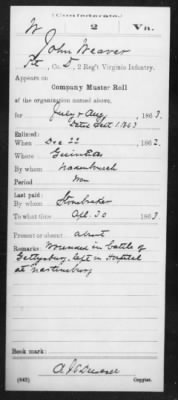 (Confederate.)
W 2 Va.
John Weaver
Pt, Co. D, 2 Reg't Virginia Infantry.
Appears on
Company Muster Roll
of the organization named above,
for July & Aug, 1863.
Dated Sept 1 1863
Enlisted:
When Dec 22, 1862.
Where
By whom
Period War
Last paid:
By whom Stonebraker
To what time Apl 30, 1863.
Present or absent absent
Remarks: Wounded in battle of
Gettysburg left in Hospital
at Martinsburg
Book mark:
(642) Copyist.